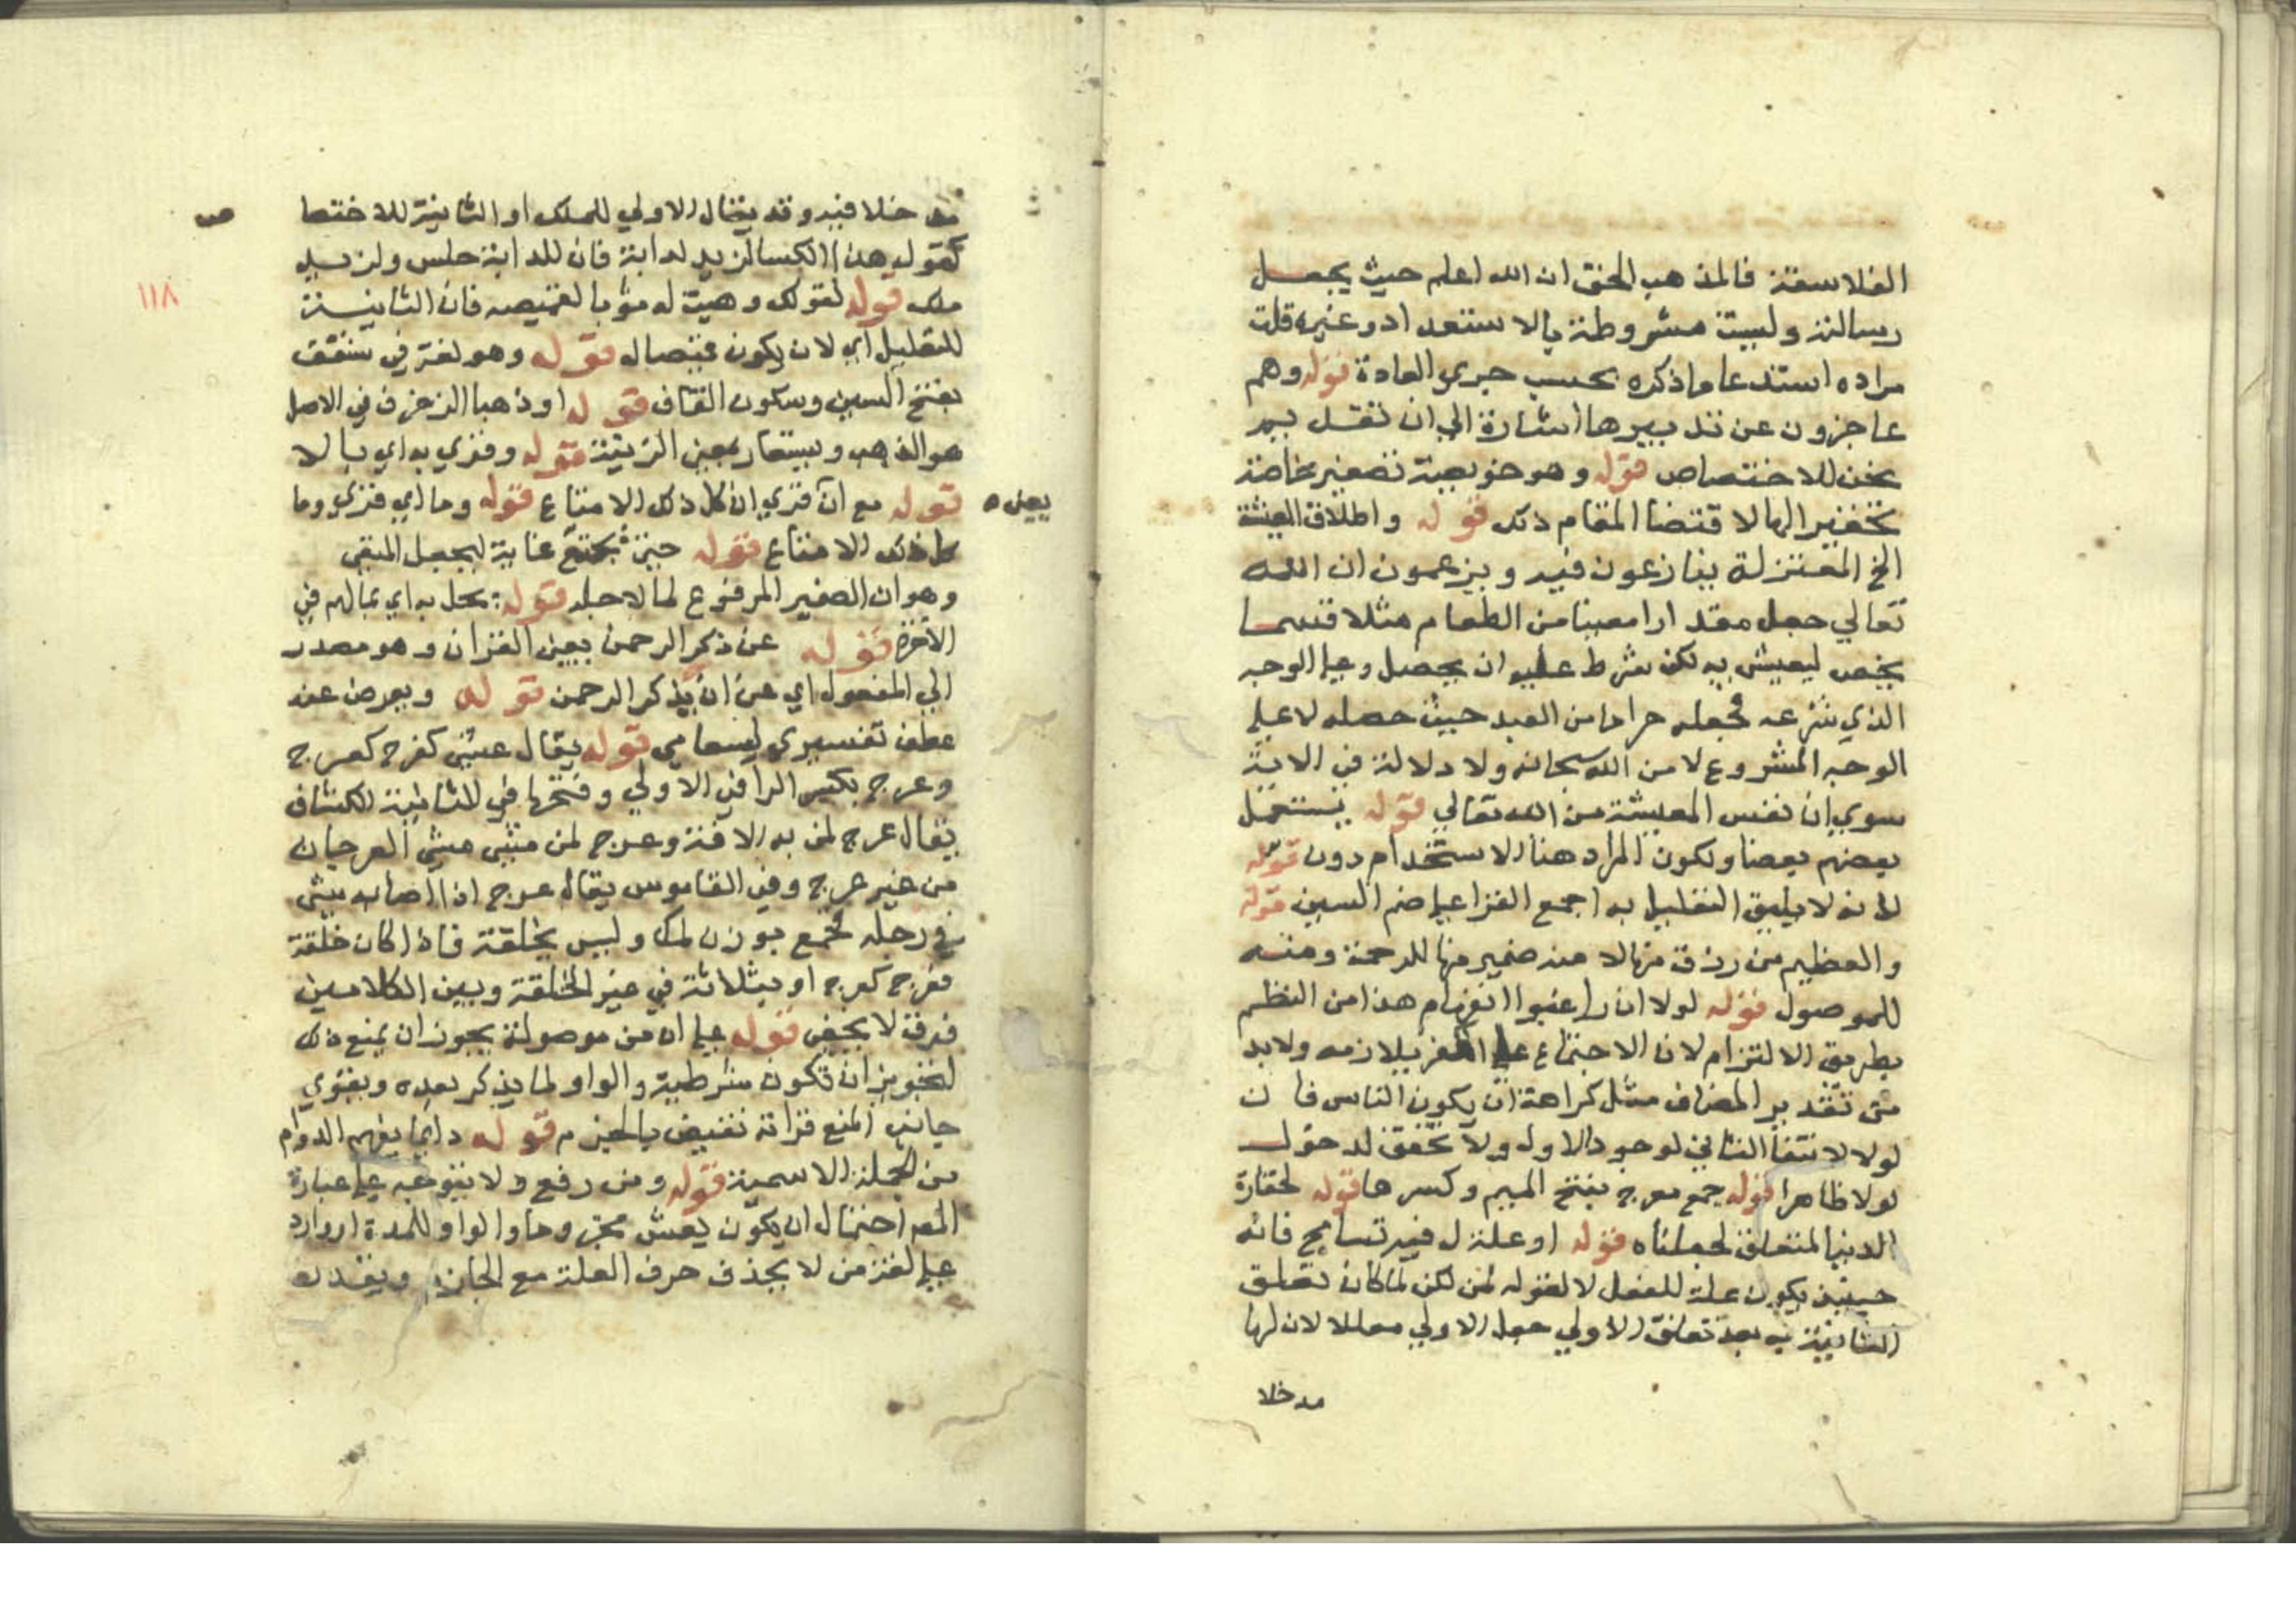 الفلاسفة فالمذهب الحق ان الله اعلم حيث يجعل
رسالته وليست مشروطة بالاستعداد وغيره قلت
مراده استدعا ما ذكره بحسب جري العادة قوله وهم
عاجزون عن تدبيرها اشارة الي ان تقديم
نحن للاختصاص قوله وهو خويصة تصغير خاصة
تحقير الها لاقتضا المقام ذلك قوله واطلاق المعيشة
الخ المعتزلة ينازعون فيه ويزعمون ان الله
تعالي جعل مقدارا معينا من الطعام مثلا قسما
يخص ليعيش به لكن شرط عليه ان يحصل وعلي الوجه
الذي شرعه فجعله حراما من العبد حيث حصله لا علي
الوجه المشروع لا من الله سبحانه ولا دلالة في الاية
سوي ان نفس المعيشة من الله تعالي قوله يستعمل
بعضهم بعضا ويكون المراد هنا الاستخدام دون قوله
لانه لا يليق التعليل به اجمع القرا علي ضم السين قوله
والعظيم من رزق منها لا منه ضمير منها للرحمة ومنه
للموصول قوله لولا ان راغبوا انفهام هذا من النظم
بطريق الالتزام لان الاجتماع علي الكفر يلازمه ولابد
من تقدير المضاف مثل كراهة ان يكون الناس فان
لولا لانتفا الثاني لوجود الاول ولا تحقق لمدخول
لولا ظاهرا قوله جمع معرج بفتح الميم وكسرها قوله لحقارة
الدنيا المتعلق لجعلناه قوله او علة له فيه تسامح فانه
حينئذ يكون علة للفعل لا لقوله لمن لكن لما كان تعلق
الثانية به بعد تعلق الاولي جعل الاولي معللا لان لها
مدخلا
مدخلا فيه وقد يقال الاولي للملك او الثانية للاختصا
ص
كقوله هذا الكسا لزيد لدابة فان للدابة حلس ولزيد
ملك قوله لقولك وهبت له ثوبا لقميصه فان الثانية
١١٨
للتعليل اي لان يكون قميصا له قوله وهو لغة في سقف
بفتح السين وسكون القاف قوله او ذهبا الزخرف في الاصل
هو الذهب ويستعار بمعني الزينة قوله وقري به اي بالا
قوله مع ان قري ان كل ذلك الا متاع قوله وما اي قري وما
يعني ه
كل ذلك الا متاع قوله حتي يجتمع غاية ليجعل المنفي
وهو ان الصغير المرفوع لما لاجله قوله يخل به اي بمالهم في
الاخرة قوله عن ذكر الرحمن يعني القران وهو مصدر
الي المفعول اي عن ان يذكر الرحمن قوله ويعرض عنه
عطف تفسيري ليتعامي قوله يقال عشي كفرح كعرج
وعرج بكسر الرا في الاولي وفتحها في الثانية الكشاف
يقال عرج لمن به الافة وعرج لمن مشي مشي العرجان
من غير عرج وفي القاموس يقال عرج اذا اصابه شي
في رجله فخمع بوزن لمك وليس بخلقة فاذا كان خلقة
فعرج كعرج او بثلاثة في غير الخلقة وبين الكلامين
فرق لا يخفي قوله علي ان من موصولة يجوز ان يمنع ذلك
لتجويز ان تكون شرطية والواو لما يذكر بعده ويقوي
جانب المنع قراة نقيض بالجزم قوله دايما يفهم الدوام
من الجملة الاسمية قوله ومن رفع ولا يتوجه علي عبارة
المص احتمال ان يكون يعش مجزوما والواو للمدة او وارد
علي لغة من لا يحذف حرف العلة مع الجازم ويقدره